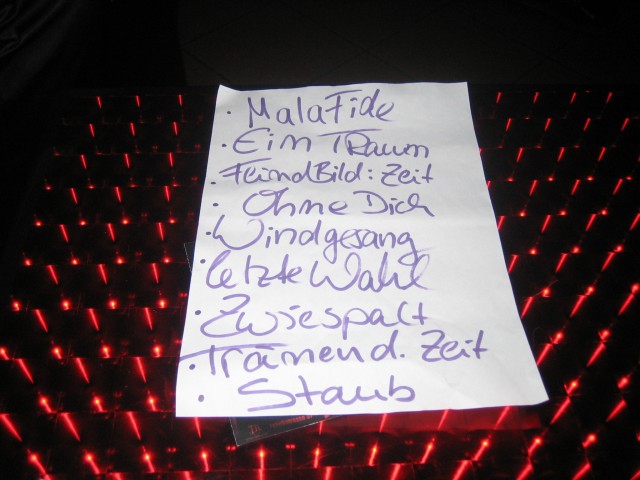 · MalaFide
· Ein Traum
· FeindBild: Zeit
· Ohne Dich
· Windgesang
· letzte Wahl
· Zwiespalt
· Tränen d. Zeit
· Staub